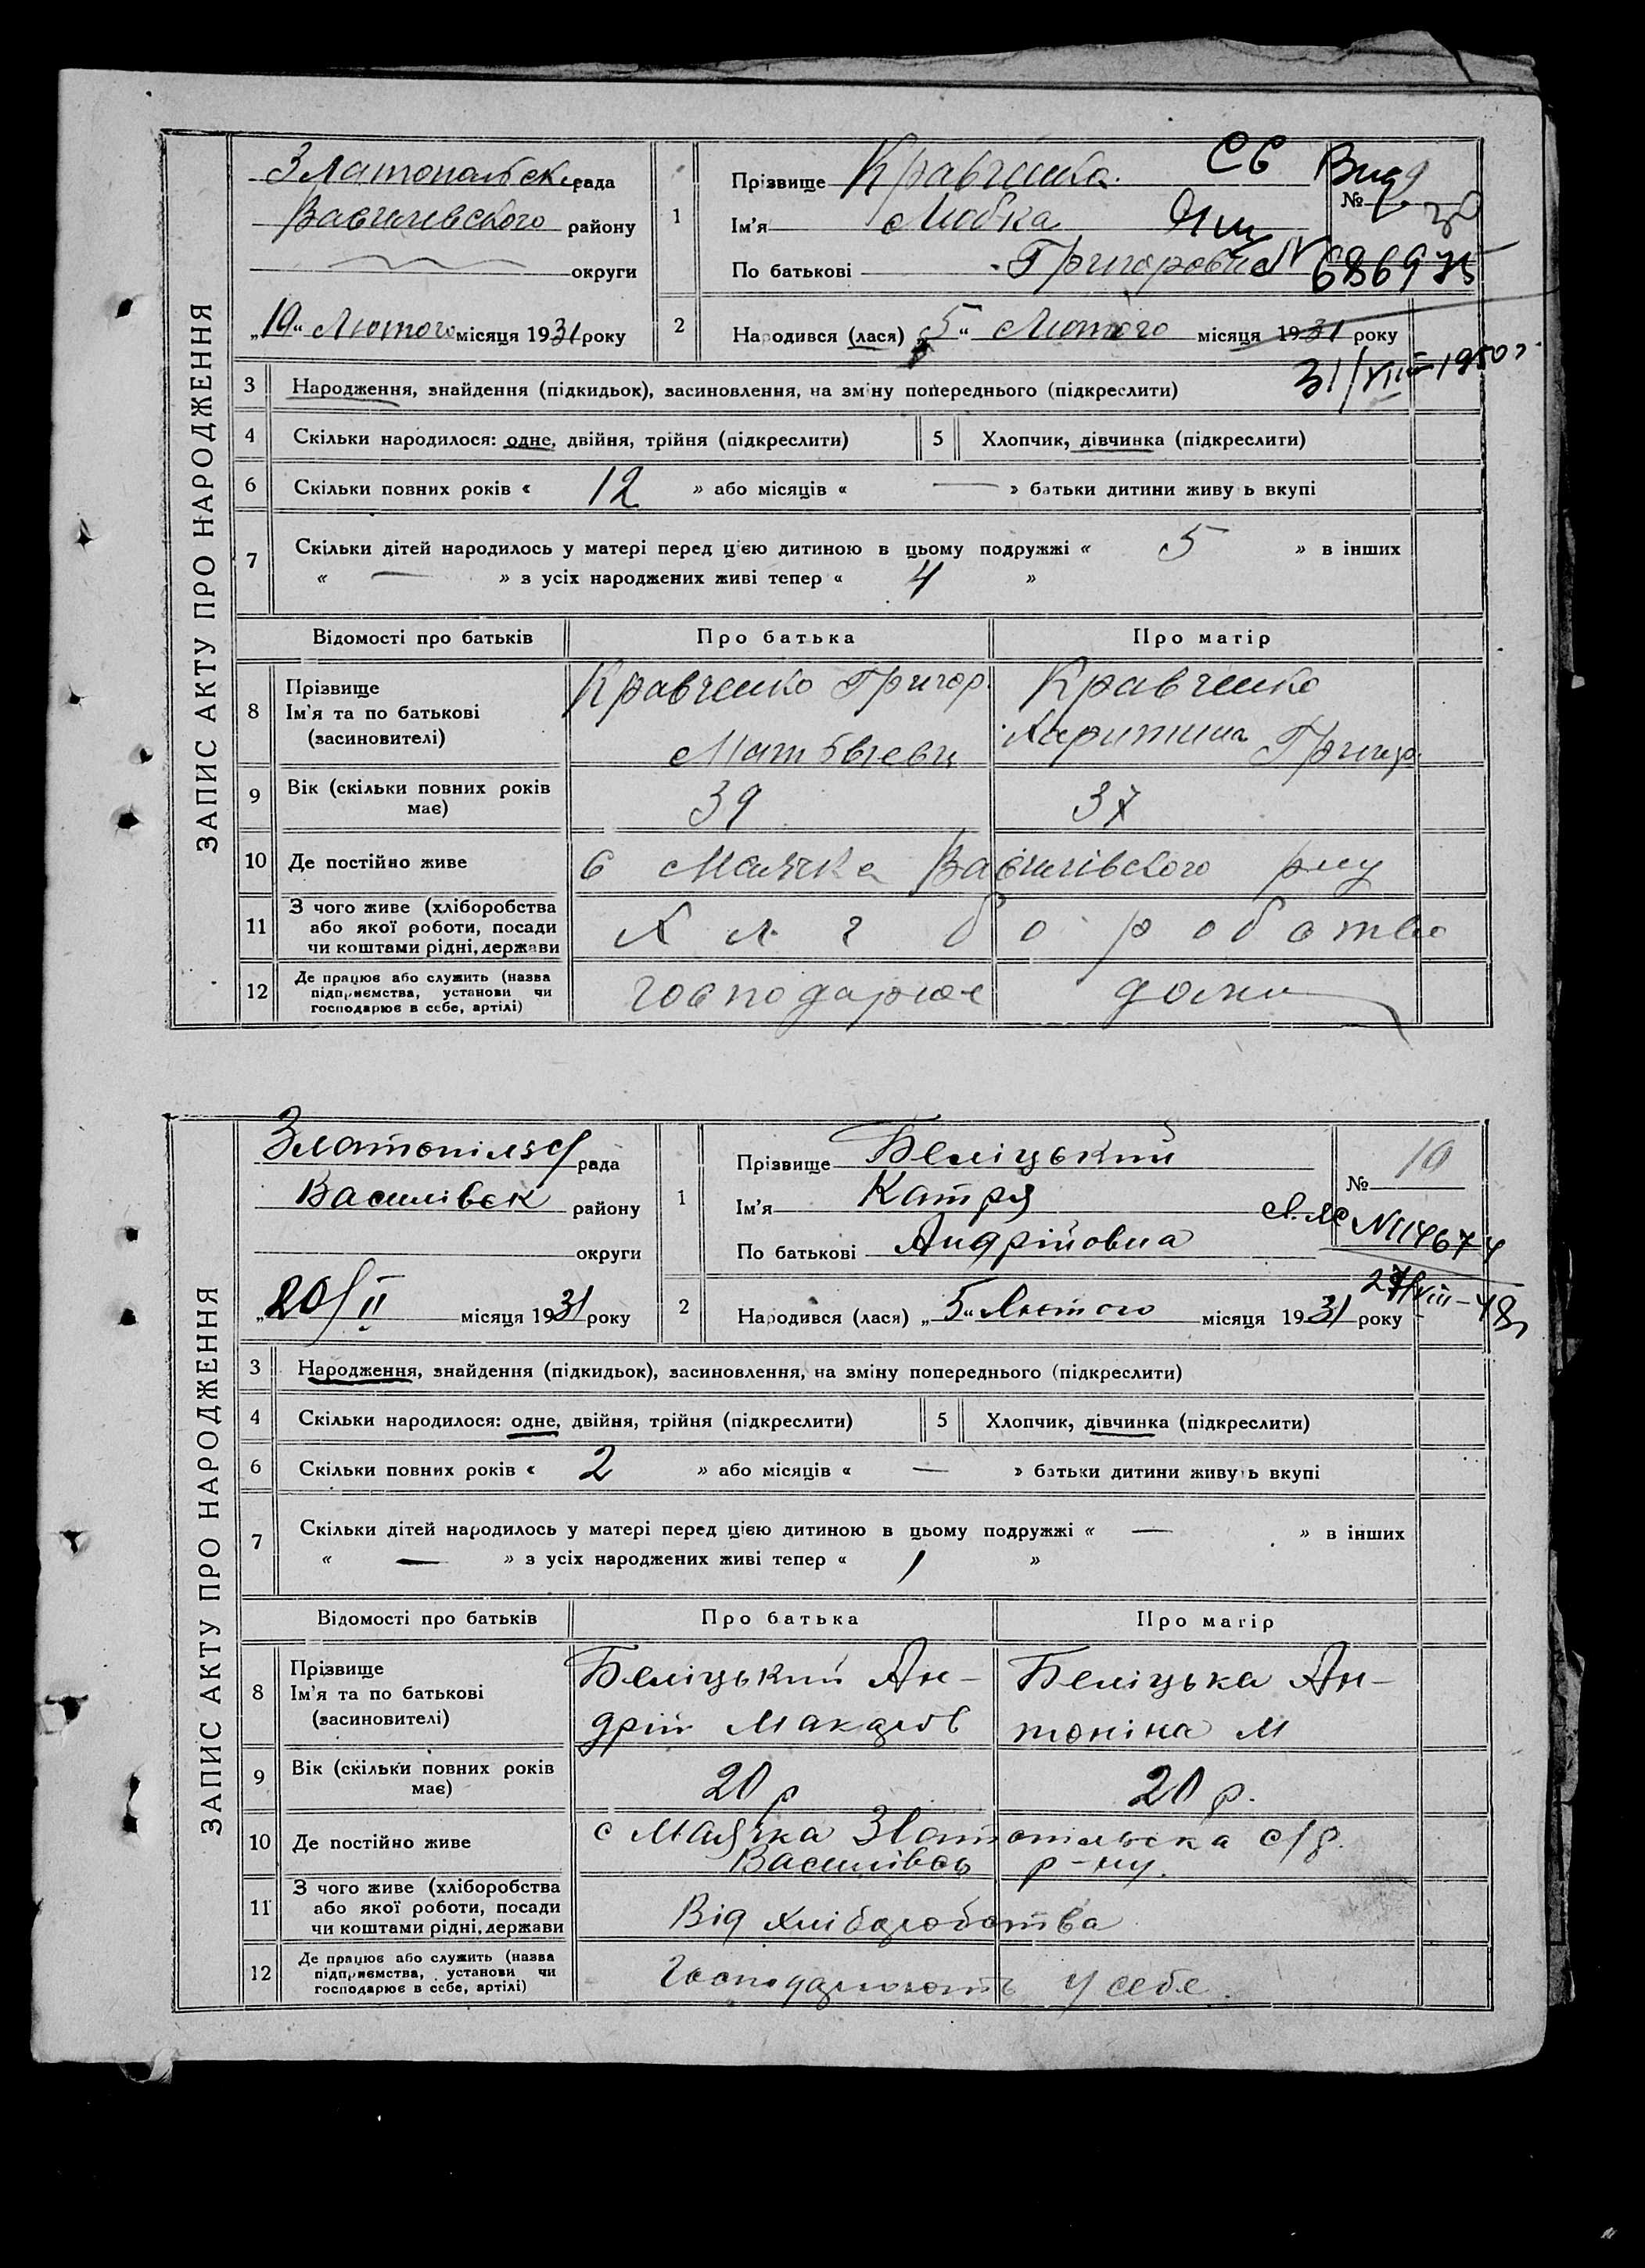 ЗАПИС АКТУ ПРО НАРОДЖЕННЯ
Златопольск. рада
Василевского району
округи
„10“ Лютого місяця 1931 року
1
Прізвище Кравченко
Ім'я Любка
По батькові Григоровна
СВ
Вид
№ 9
ЯЩ
N 686975
31/VII-1950г
2 Народився (лася) „5“ Лютого місяця 1931 року
3 Народження, знайдення (підкидьок), засиновлення, на зміну попереднього (підкреслити)
4 Скільки народилося: одне, двійня, трійня (підкреслити) 5 Хлопчик, дівчинка (підкреслити)
6 Скільки повних років « 12 » або місяців « — » батьки дитини живу ь вкупі
7 Скільки дітей народилось у матері перед цією дитиною в цьому подружжі « 5 » в інших
« — » з усіх народжених живі тепер « 4 »
Відомості про батьків Про батька Про матір
8 Прізвище
Ім'я та по батькові
(засиновителі)
Кравченко Григор.
Матвыеви
Кравченко
Харитина Григор
9 Вік (скільки повних років має) 39 37
10 Де постійно живе с Маячка Василівского рну
11 З чого живе (хліборобства
або якої роботи, посади
чи коштами рідні, держави
Хлібороботво
12 Де працює або служить (назва
підприємства, установи чи
господарює в себе, артілі)
господарює дома
ЗАПИС АКТУ ПРО НАРОДЖЕННЯ
Златопільс рада
Василівск району
округи
„20/II місяця 1931 року
1
Прізвище Беліцький
Ім'я Катря
По батькові Андрійовна
№ 10
N 114674
27/VIII-48
2 Народився (лася) „5“ Лютого місяця 1931 року
3 Народження, знайдення (підкидьок), засиновлення, на зміну попереднього (підкреслити)
4 Скільки народилося: одне, двійня, трійня (підкреслити) 5 Хлопчик, дівчинка (підкреслити)
6 Скільки повних років « 2 » або місяців « — » батьки дитини живуть вкупі
7 Скільки дітей народилось у матері перед цією дитиною в цьому подружжі « — » в інших
« — » з усіх народжених живі тепер « 1 »
Відомості про батьків Про батька Про матір
8 Прізвище
Ім'я та по батькові
(засиновителі)
Беліцький Ан-
дрій Макаров
Беліцька Ан-
тоніна М
9 Вік (скільки повних років має) 20 р 20 р.
10 Де постійно живе с Маячка Златопільска с/р.
Василівсь р-ну.
11 З чого живе (хліборобства
або якої роботи, посади
чи коштами рідні, держави
Від хліборобства
12 Де працює або служить (назва
підприємства, установи чи
господарює в себе, артілі)
Господарюють у себе.